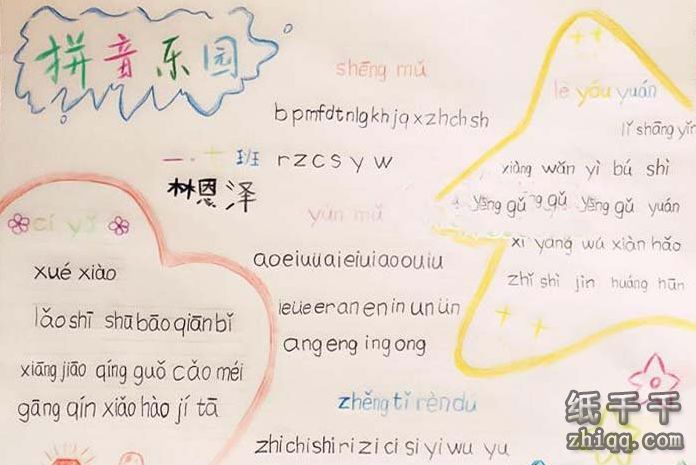 拼音乐园
shēng mǔ
bpmfdtnlgkhjqxzhchsh
rzcsyw
一.十班
林恩泽
yùn mǔ
aoeiuüaieiuiaoouiu
ieüeeraneninunün
angengingong
zhěng tǐ rèn dú
zhichishirizicisiyiwuyu
cí yǔ
xué xiào
lǎo shī shū bāo qiān bǐ
xiāng jiāo qíng guǒ cǎo méi
gāng qín xiǎo hào jí tā
lè yóu yuán
lǐ shāng yǐn
xiàng wǎn yì bú shì
yuán
xī yáng wú xiàn hǎo
zhǐ shì jìn huáng hūn
纸千千
zhiqq.com